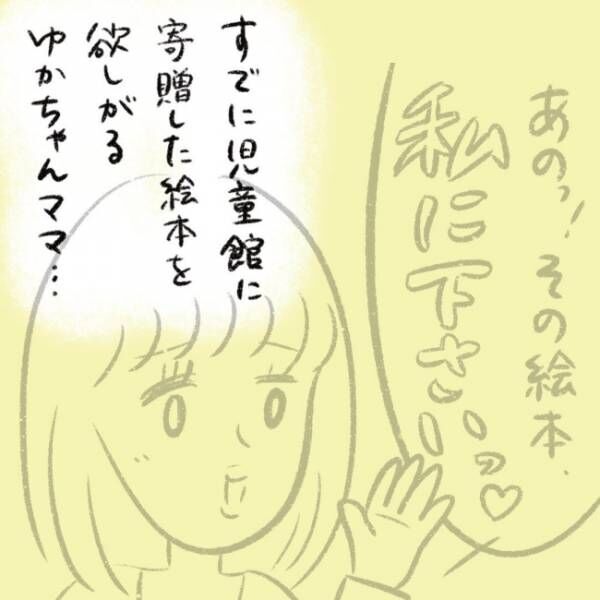 あのっ！その絵本、
私に下さいっ♡
すでに児童館に
寄贈した絵本を
欲しがる
ゆかちゃんママ…